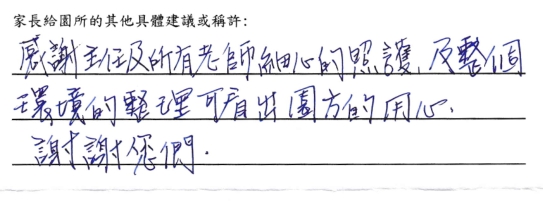 家長給園所的其他具體建議或稱許:
感謝主任及所有老師細心的照護,及整個
環境的整理可看出園方的用心.
謝謝您們.